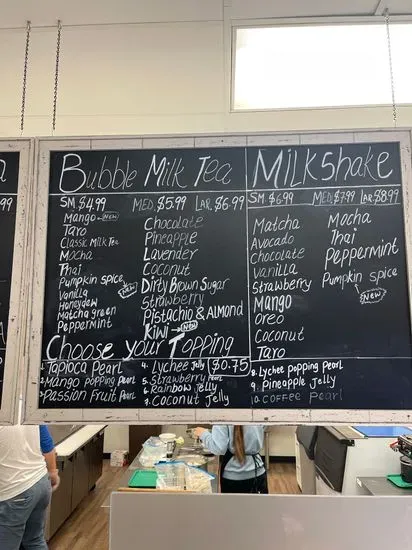 Bubble Milk Tea
SM $4.99 MED. $5.99 LAR. $6.99
Mango - New
Taro
Classic Milk Tea
Mocha
Thai
Pumpkin spice
New
Vanilla
Honeydew
Matcha green
Peppermint
Chocolate
Pineapple
Lavender
Coconut
Dirty Brown Sugar
Strawberry
Pistachio & Almond
Kiwi → New
Milkshake
SM $6.99 MED. $7.99 LAR. $8.99
Matcha
Avocado
chocolate
vanilla
Strawberry
Mango
oreo
Coconut
Taro
Mocha
Thai
Peppermint
Pumpkin spice
New
Choose your Topping
($0.75)
1. Tapioca Pearl
2. Mango popping Pearl
3. Passion Fruit Pearl
4. Lychee Jelly
5. Strawberry Pearl
6. Rainbow Jelly
7. Coconut Jelly
8. Lychee popping pearl
9. Pineapple Jelly
10. Coffee Pearl
a
.99